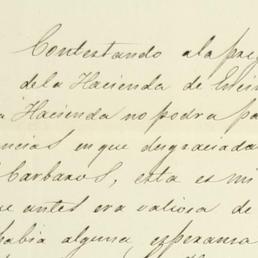 Contestando a la pre
de la Hacienda de Enci
Hacienda no podra pa
ncias en que desgraciada
Carbaxos, esta es mi
e antes era valiosa de
habia alguna esperanza